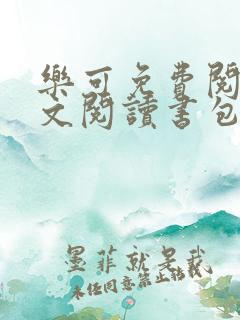 樂可免費閱
文閱讀書包
墨菲就是我
未經同意禁止轉載